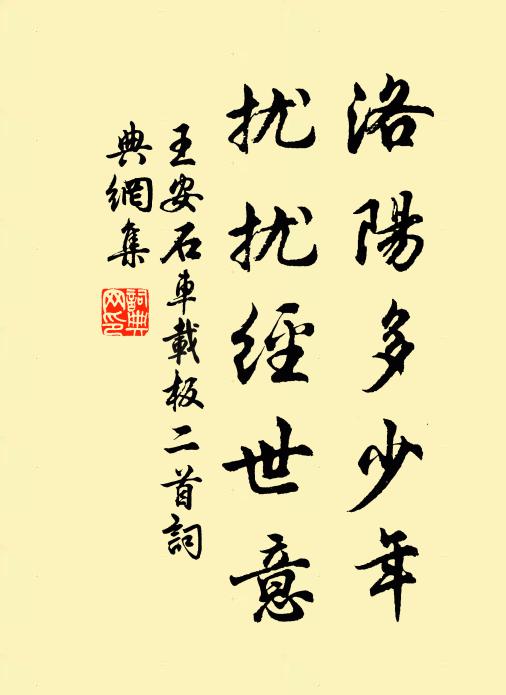 洛陽多少年
扰扰經世意
王安石車載板二首詞
典網集
詞典
网印